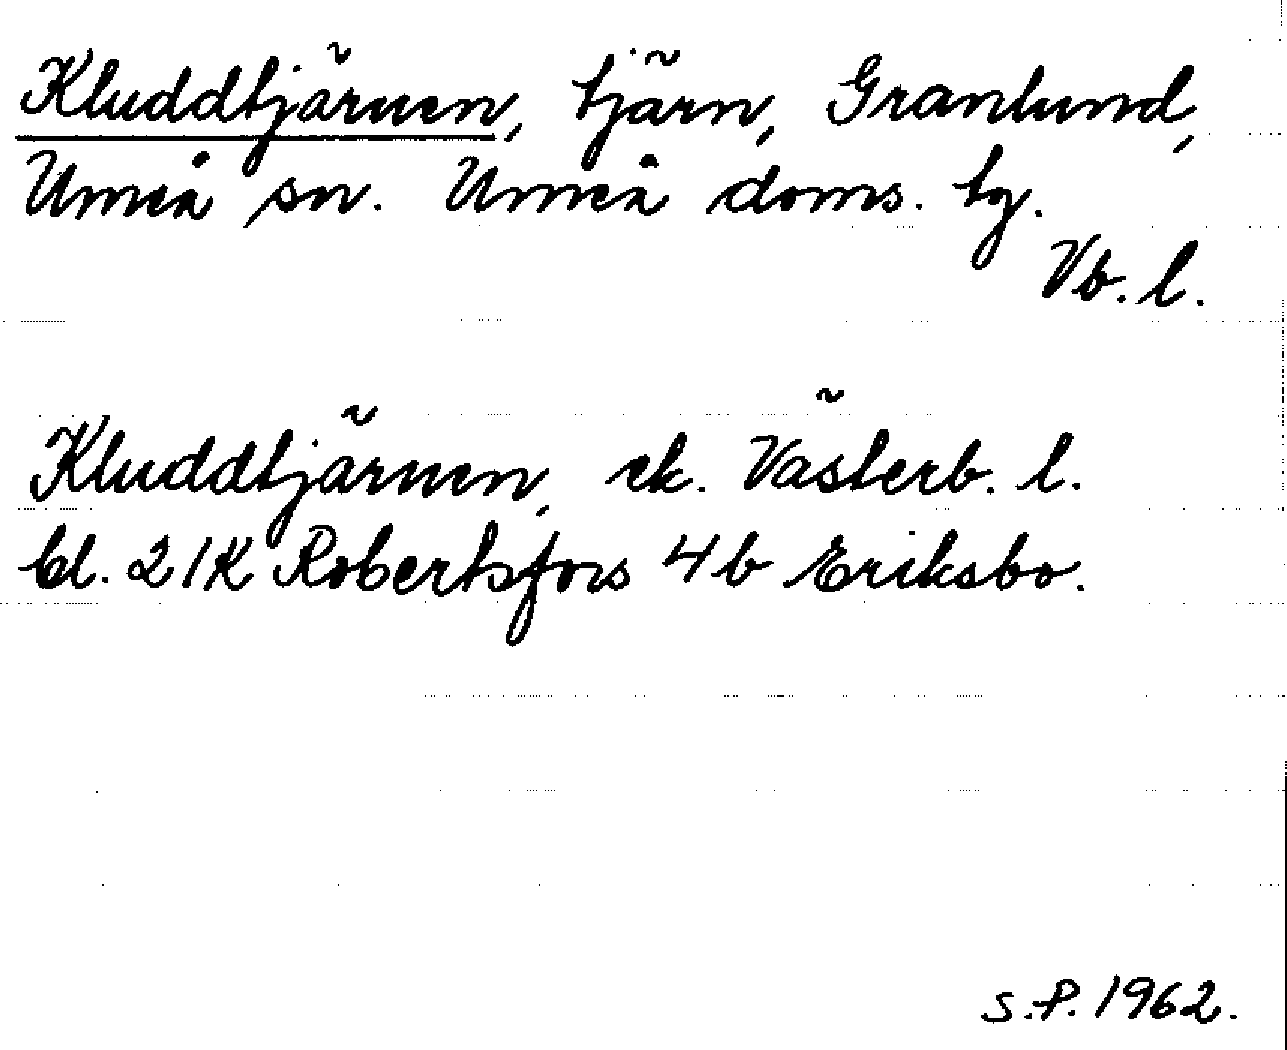 Kluddtjärnen, tjärn, Granlund,
Umeå sn. Umeå doms. tg.
Vb. l.
Kluddtjärnen, ek. Västerb. l.
bl. 21K Robertsfors 4b Eriksbo.
S.P. 1962.